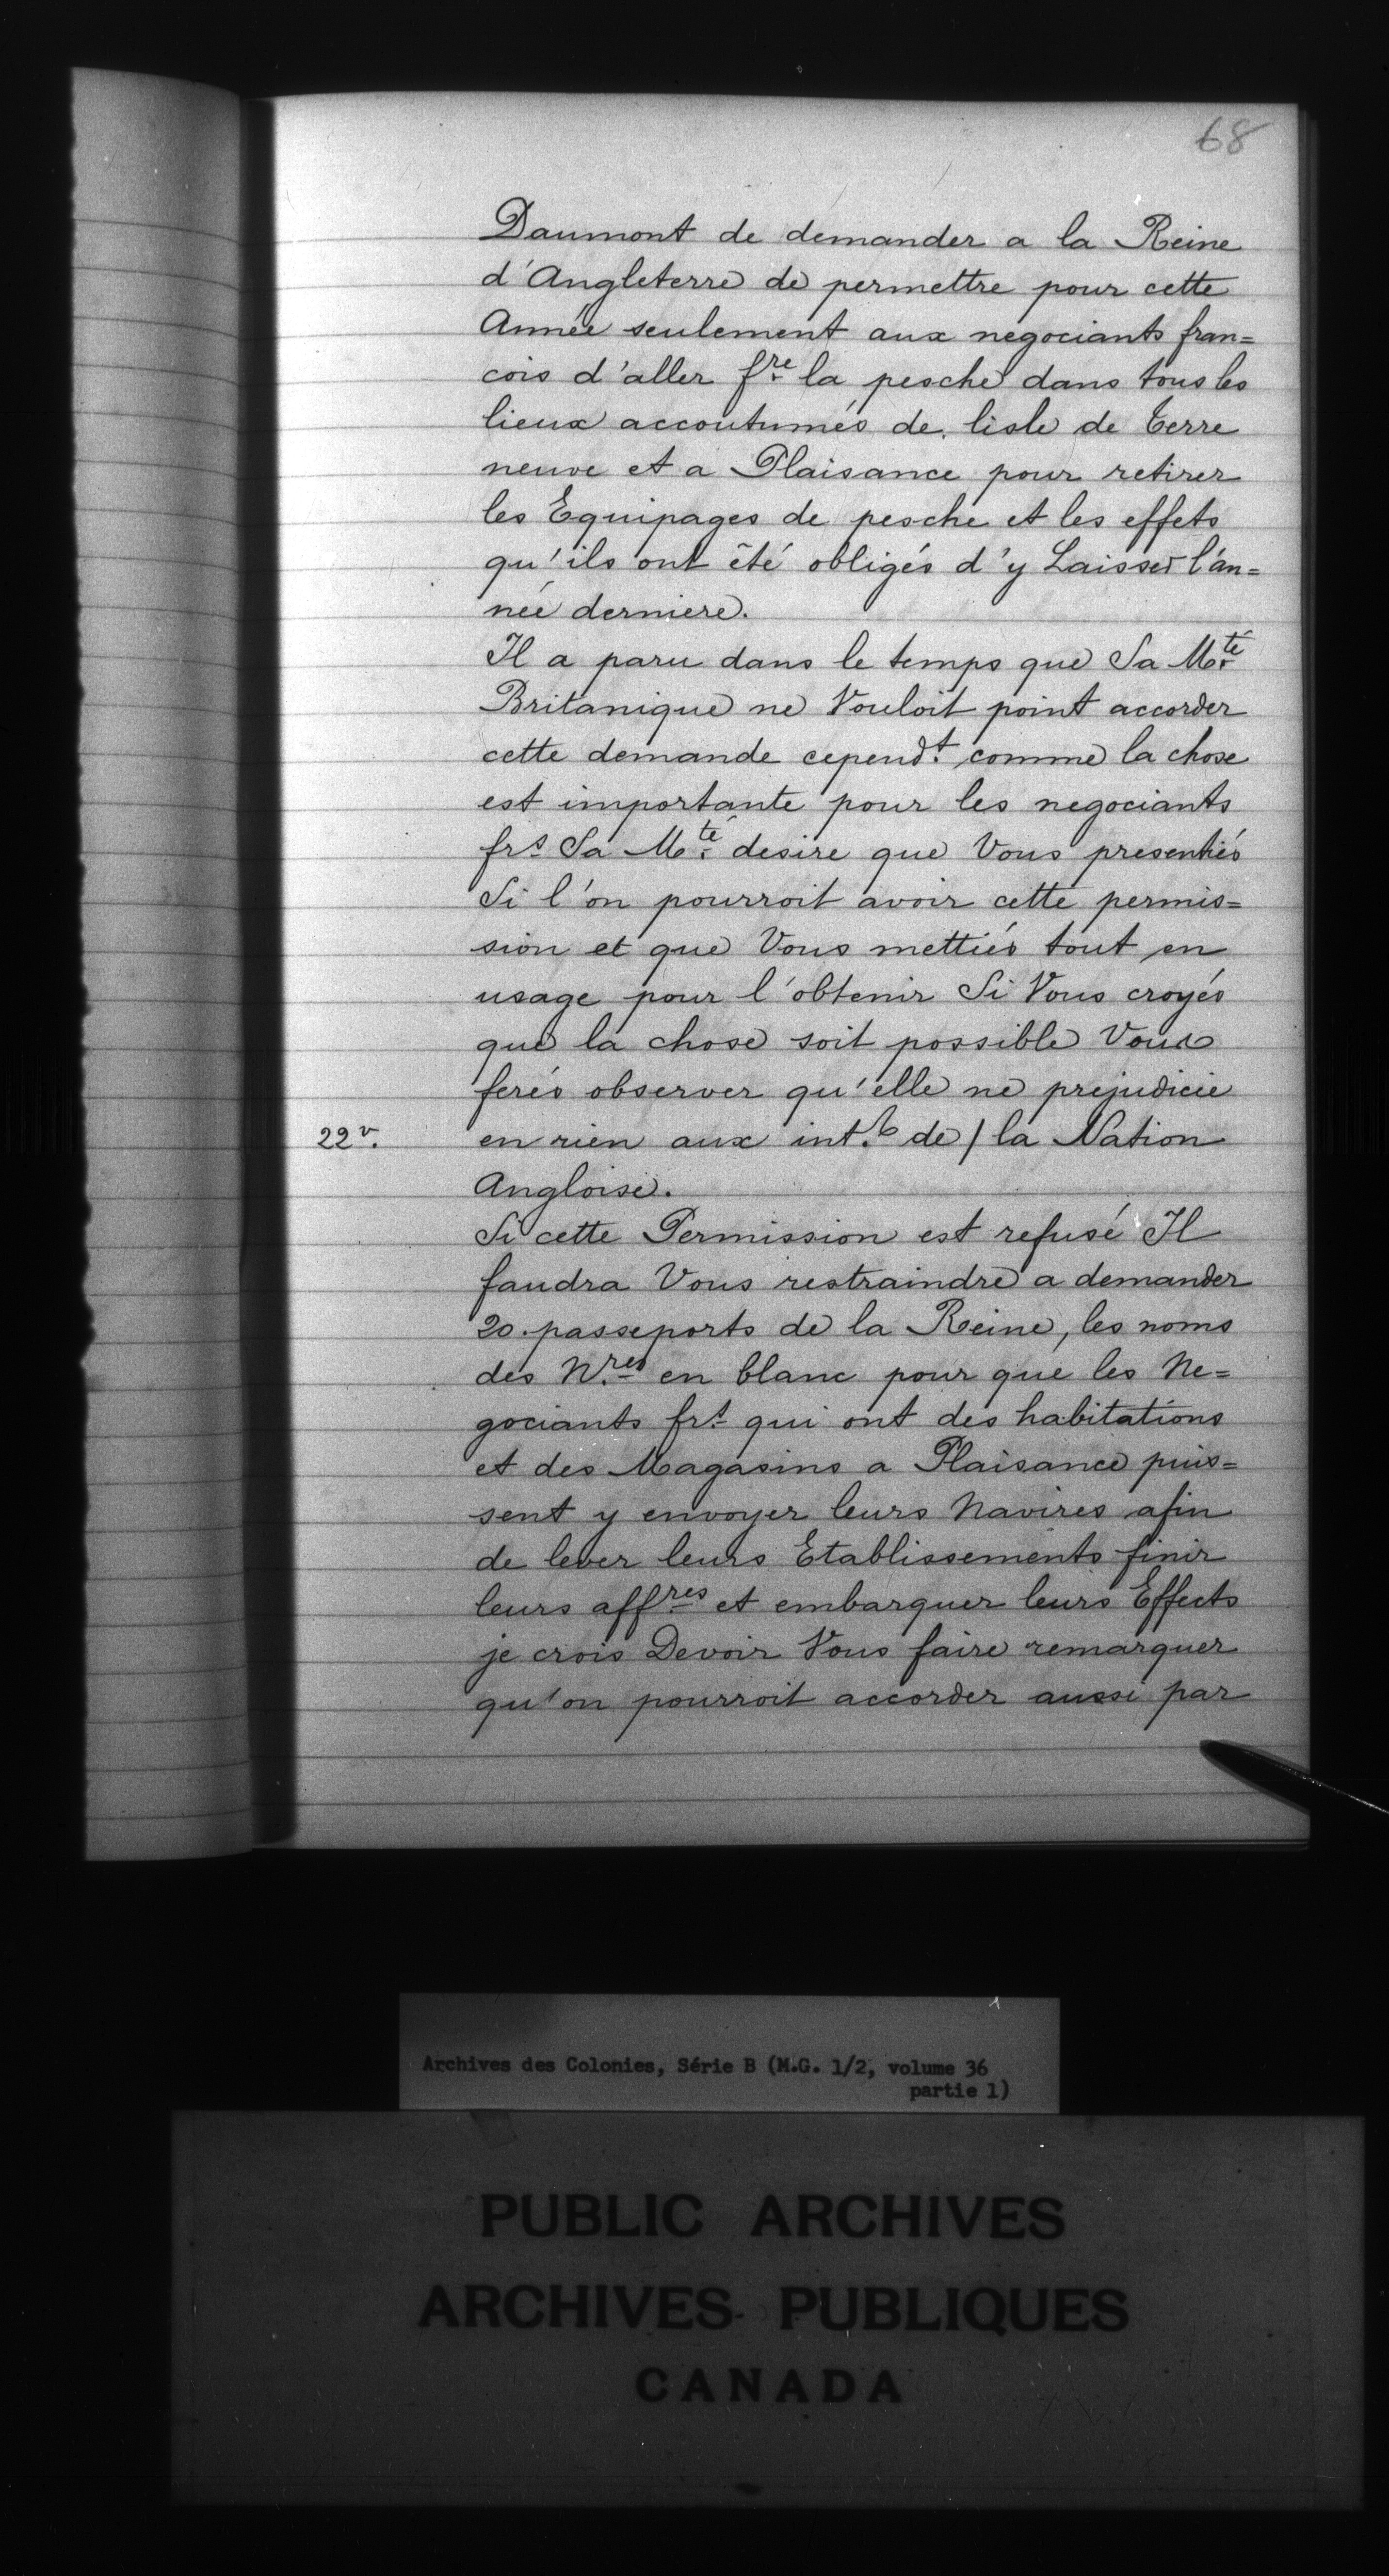 68
Daumont de demander a la Reine
d'Angleterre de permettre pour cette
Année seulement aux negociants fran=
cois d'aller f.re la pesche dans tous les
lieux accoutumés de lisle de terre
neuve et a Plaisance pour retirer
les Equipages de pesche et les effets
qu'ils ont été obligés d'y Laisser l'an=
née derniere.
Il a paru dans le temps que Sa M.té
Britanique ne Vouloit point accorder
cette demande cepend.t comme la chose
est importante pour les negociants
frs Sa M.té desire que Vous presentiés
Si l'on pourroit avoir cette permis=
sion et que Vous mettiés tout en
usage pour l'obtenir Si Vous croyés
que la chose soit possible Vous
ferés observer qu'elle ne prejudicie
22 v. en rien aux int.ts de / la Nation
Angloise.
Si cette Permission est refusé Il
faudra Vous restraindre a demander
20. passeports de la Reine, les noms
des N.res en blanc pour que les Ne=
gociants frs qui ont des habitations
et des Magasins a Plaisance puis=
sent y envoyer leurs Navires afin
de lever leurs Etablissements finir
leurs affres et embarquer leurs Effects
je crois Devoir Vous faire remarquer
qu'on pourroit accorder aussi par
Archives des Colonies, Série B (M.G. 1/2, volume 36
partie 1)
PUBLIC ARCHIVES
ARCHIVES PUBLIQUES
CANADA